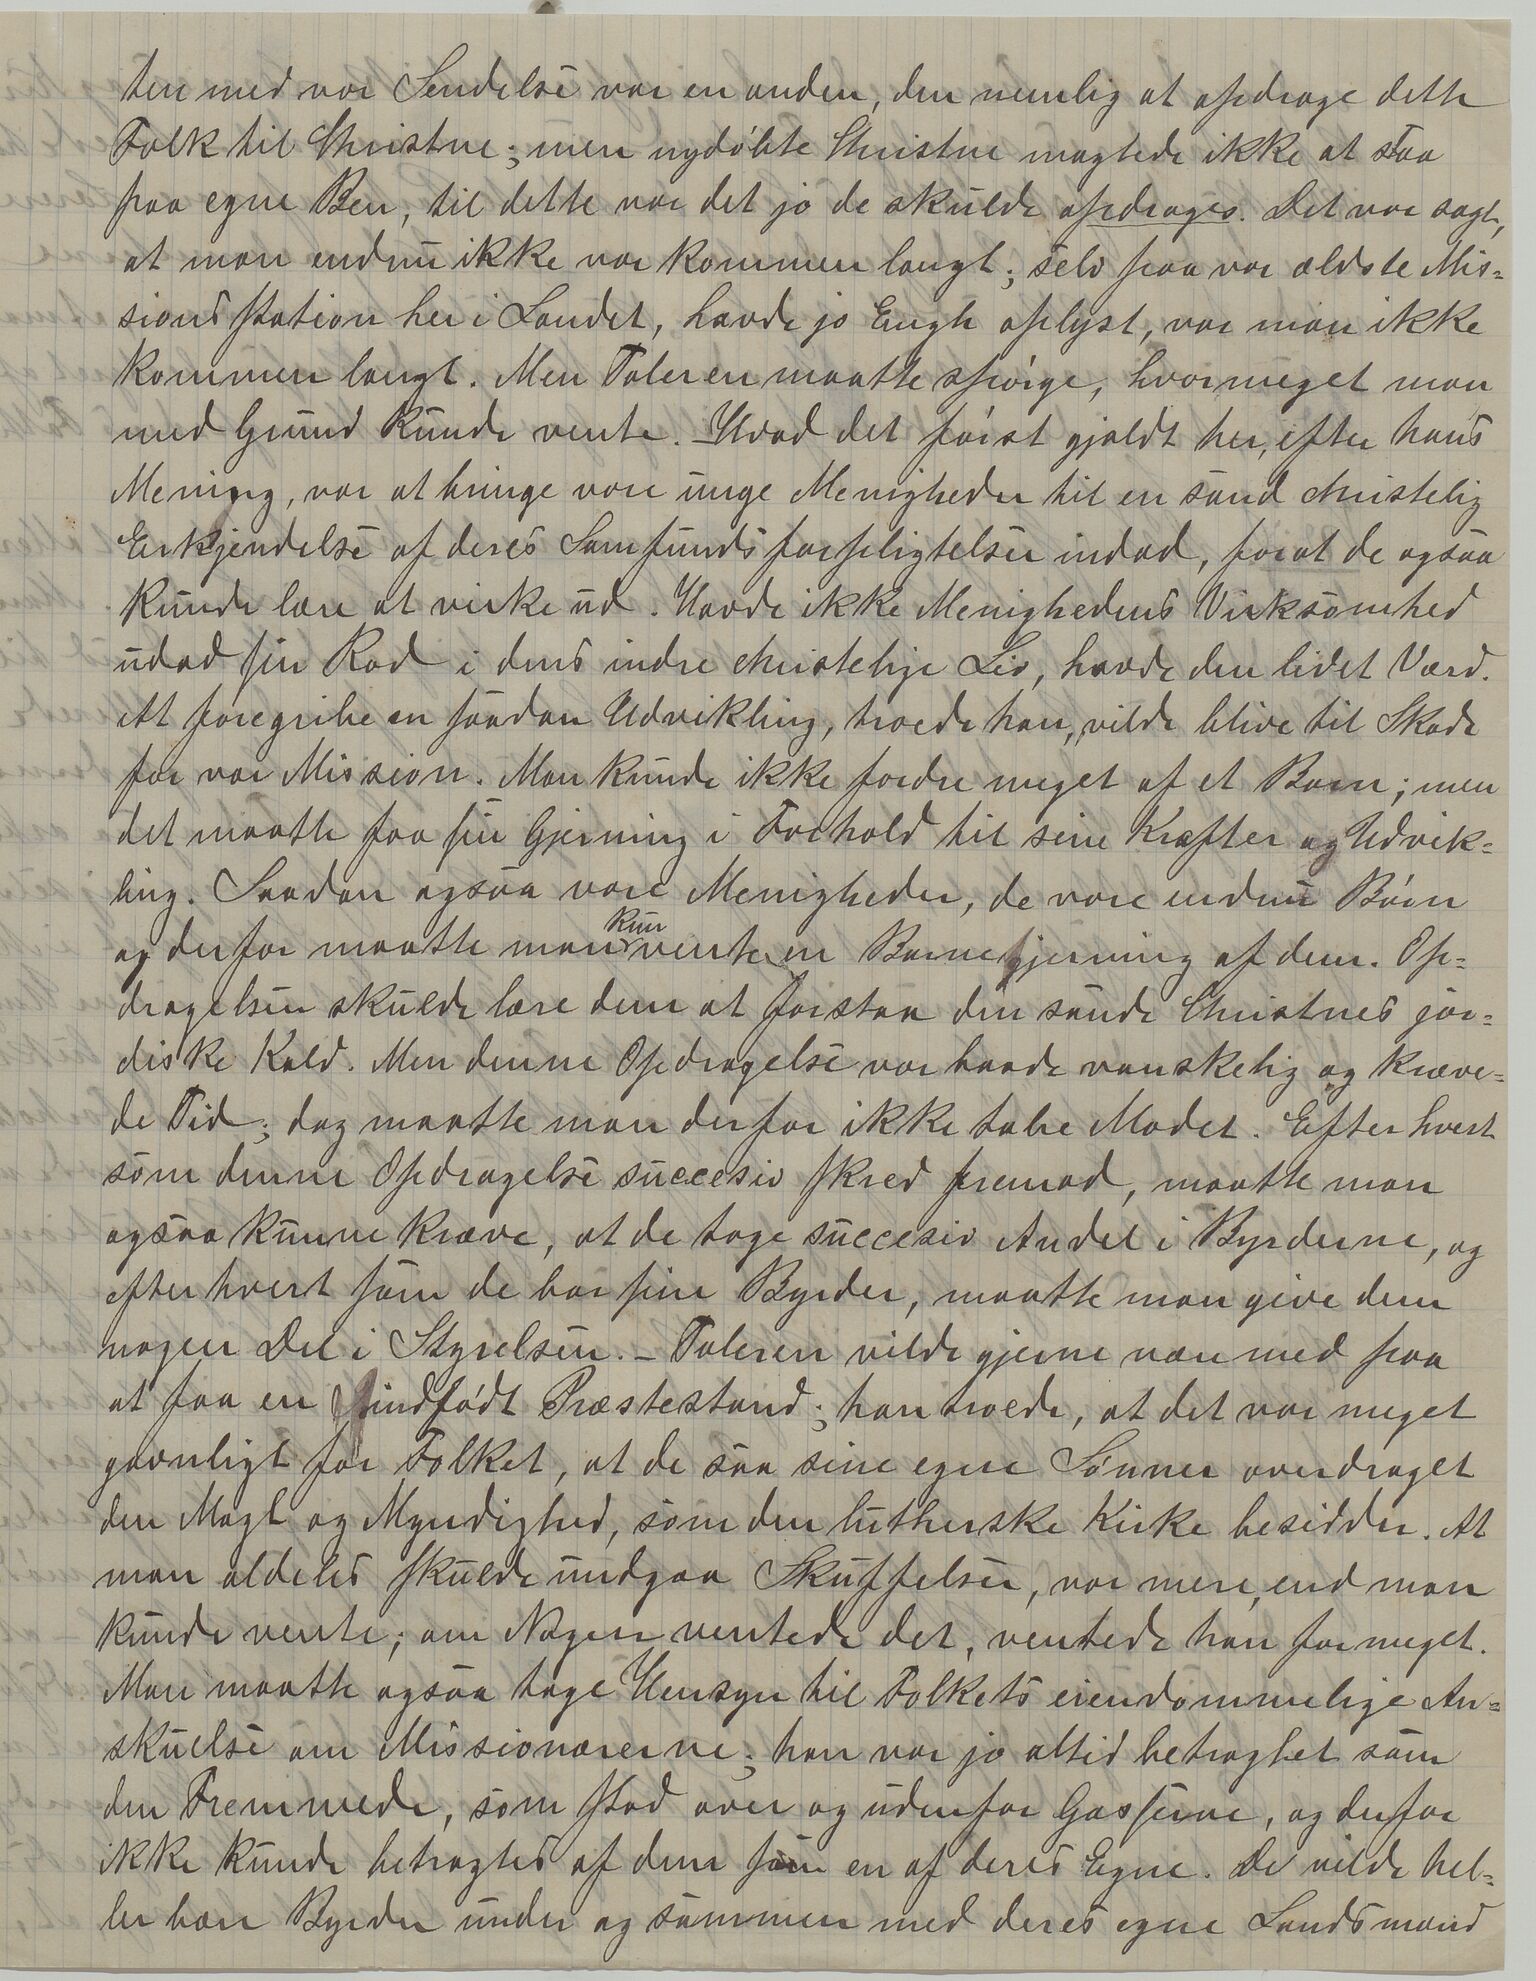 ten med vor Sendelse var en anden, den nemlig at opdrage dette
Folk til Christne; men nydöbte Christne magtede ikke at staa
paa egne Ben, til dette var det jo de skulde opdrages. Det var sagt,
at man endnu ikke var kommen langt; selv paa vor ældste Mis=
sionsstation her i Landet, havde jo Engh oplyst, var man ikke
kommen langt. Men Taleren maatte spörge, hvormeget man
med Grund kunde vente. – Hvad det först gjaldt her, efter hans
Mening, var at bringe vore unge Menigheder til en sand christelig
Erkjendelse af deres Samfundsforpligtelser indad, forat de ogsaa
kunde lære at virke ud. Havde ikke Menighedens Virksomhed
udad sin Rod i dens indre christelige Liv, havde den lidet Værd.
At foregribe en saadan Udvikling, troede han, vilde blive til Skade
for vor Mission. Man kunde ikke fordre meget af et Barn; men
det maatte faa sin Gjerning i Forhold til sine Kræfter og Udvik=
ling. Saadan ogsaa vore Menigheder, de vare endnu Börn
og derfor maatte man kun vente en Barnegjerning af dem. Op=
dragelsen skulde lære dem at forstaa den sande Christnes jor=
diske Kald. Men denne Opdragelse var baade vanskelig og kræve=
de Tid; dog maatte man derfor ikke tabe Modet. Efterhvert
som denne Opdragelse succesiv skred fremad, maatte man
ogsaa kunne kræve, at de toge succesiv Andel i Byrderne, og
efterhvert som de bar sine Byrder, maatte man give dem
nogen Del i Styrelsen. – Taleren vilde gjerne være med paa
at faa en indfödt Præstestand; han troede, at det var meget
gavnligt for Folket, at de saa sine egne Sönner overdraget
den Magt og Myndighed, som den lutherske Kirke besidder. At
man aldeles skulde undgaa Skuffelser, var mere, end man
kunde vente; om Nogen ventede det, ventede han for meget.
Man maatte ogsaa tage Hensyn til Folkets eiendommelige An=
skuelse om Missionærerne; han var jo altid betragtet som
den Fremmede, som stod over og udenfor Gasserne, og derfor
ikke kunde betragtes af dem som en af deres Egne. De vilde hel=
ler bære Byrder under og sammen med deres egne Landsmænd